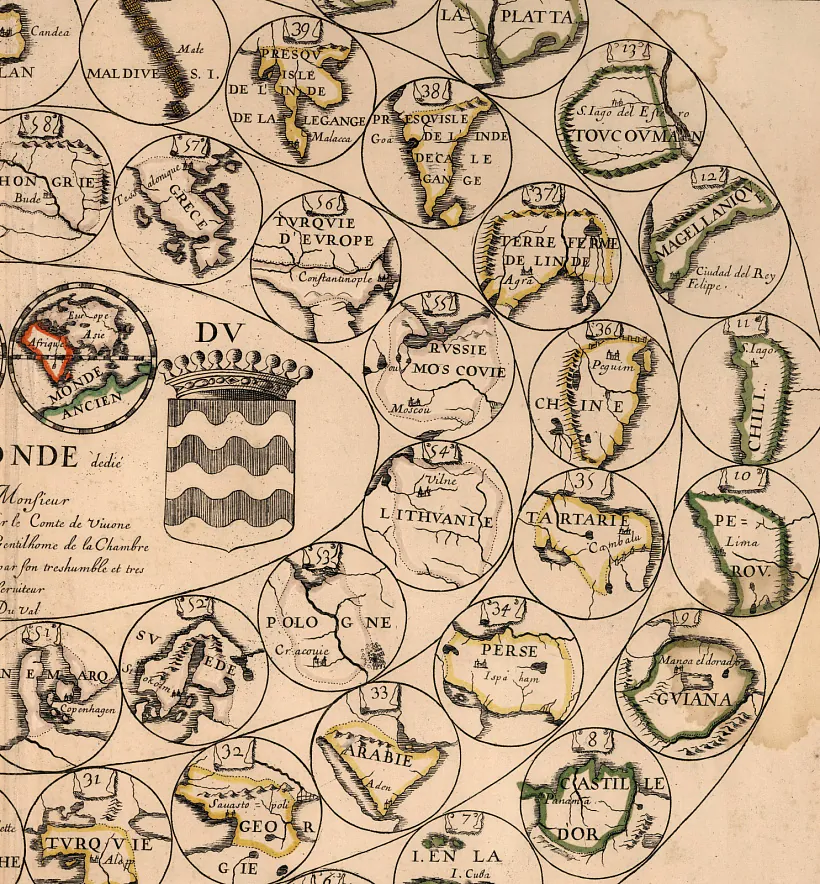 Candea
LAN
Male
MALDIVES I.
39
PRESQV
ISLE
DE L'INDE
DE LA LEGANGE
Malacca
LA PLATTA
38
PRESQVISLE
Goa DE L'INDE
DECA LE
GAN GE
13
S. Iago del Estero
TOVCOVMAN
58
HONGRIE
Bude
57
Tessalonique
GRECE
56
TVRQVIE
D'EVROPE
Constantinople
37
TERRE FERME
DE LINDE
Agra
12
MAGELLANIQVE
Ciudad del Rey
Felippe.
Europe
Asie
Afrique
MONDE
ANCIEN
DV
55
RVSSIE
ou MOSCOVIE
Moscou
36
Pequim
CHINE
11
S. Iago
CHILI.
ONDE dedié
Monsieur
r le Comte de Viuone
Gentilhome de la Chambre
par son treshumble et tres
seruiteur
Du Val
54
Vilne
LITHVANIE
35
TARTARIE
Cambalu
10
PE=
Lima
ROV.
53
POLOGNE
Cracouie
34
PERSE
Ispaham
9
Manoa el dorado
GVIANA
51
NEMARQ
Copenhagen
52
SVEDE
33
ARABIE
Aden
8
CASTILLE
Panama
DOR
31
TVRQVIE
Alep
HE
32
Sauasto=poli
GEOR
GIE
7
I. EN LA
I. Cuba
6